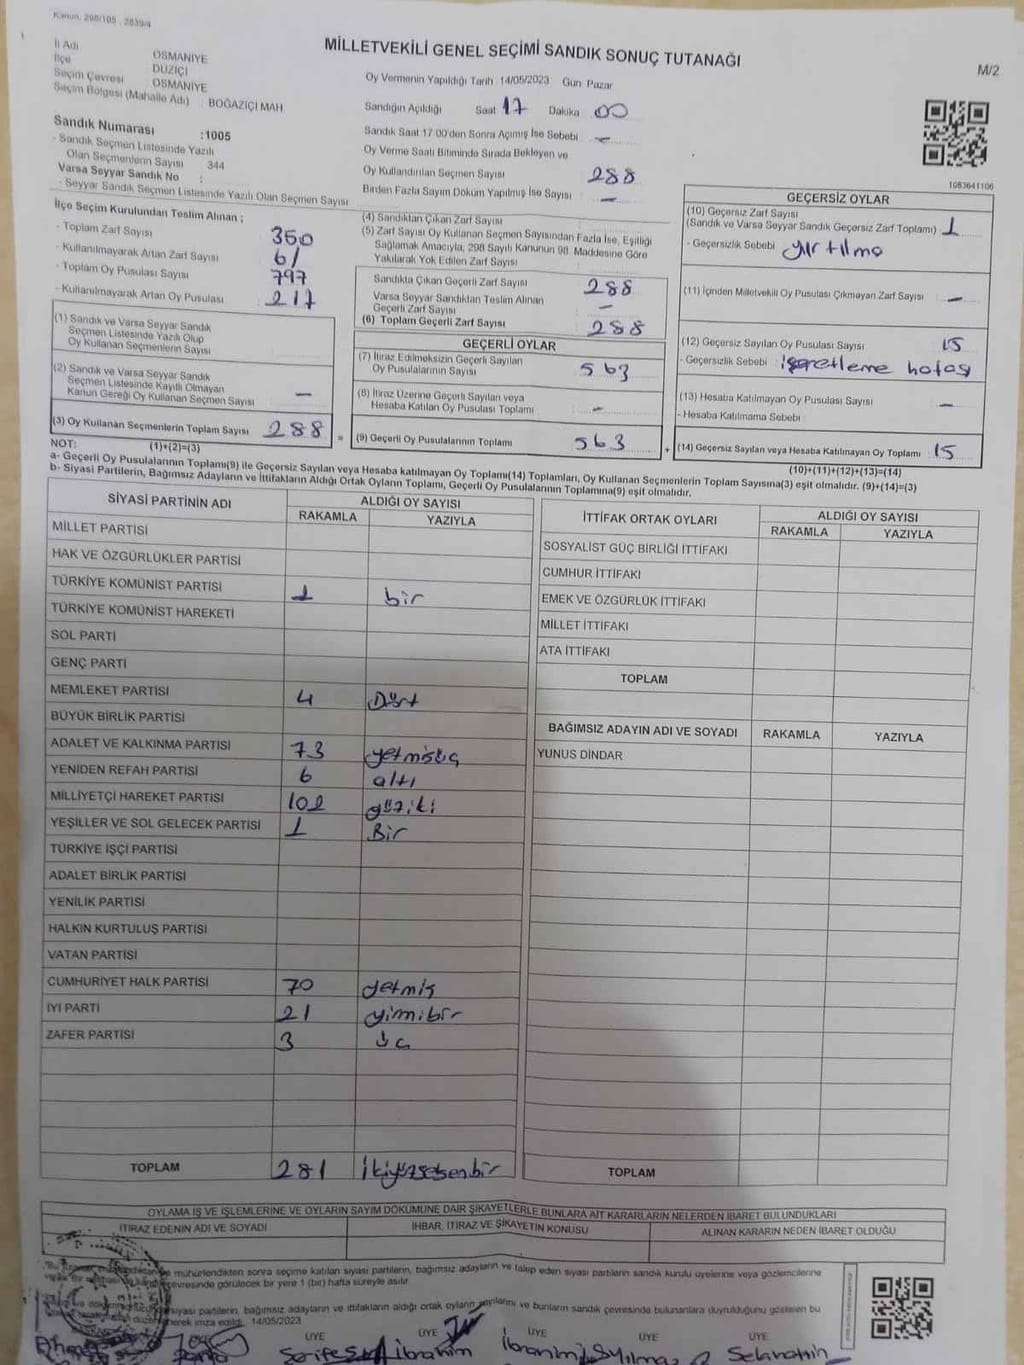 Kanun, 298/105 , 2839/4
MİLLETVEKİLİ GENEL SEÇİMİ SANDIK SONUÇ TUTANAĞI
M/2
İl Adı OSMANİYE
İlçe DÜZİÇİ
Seçim Çevresi OSMANİYE
Seçim Bölgesi (Mahalle Adı) : BOĞAZİÇİ MAH
Sandık Numarası :1005
- Sandık Seçmen Listesinde Yazılı
Olan Seçmenlerin Sayısı 344
Varsa Seyyar Sandık No :
- Seyyar Sandık Seçmen Listesinde Yazılı Olan Seçmen Sayısı
Oy Vermenin Yapıldığı Tarih 14/05/2023 Gün Pazar
Sandığın Açıldığı Saat 17 Dakika 00
Sandık Saat 17.00'den Sonra Açımış İse Sebebi –
Oy Verme Saati Bitiminde Sırada Bekleyen ve
Oy Kullandırılan Seçmen Sayısı 288
Birden Fazla Sayım Döküm Yapılmış İse Sayısı –
1083641106
İlçe Seçim Kurulundan Teslim Alınan ;
- Toplam Zarf Sayısı 350
- Kullanılmayarak Artan Zarf Sayısı 61
- Toplam Oy Pusulası Sayısı 797
- Kullanılmayarak Artan Oy Pusulası 217
(1) Sandık ve Varsa Seyyar Sandık
Seçmen Listesinde Yazılı Olup
Oy Kullanan Seçmenlerin Sayısı
(2) Sandık ve Varsa Seyyar Sandık
Seçmen Listesinde Kayıtlı Olmayan
Kanun Gereği Oy Kullanan Seçmen Sayısı –
(3) Oy Kullanan Seçmenlerin Toplam Sayısı 288
(1)+(2)=(3)
(4) Sandıktan Çıkan Zarf Sayısı
(5) Zarf Sayısı Oy Kullanan Seçmen Sayısından Fazla İse, Eşitliği
Sağlamak Amacıyla, 298 Sayılı Kanunun 98. Maddesine Göre
Yakılarak Yok Edilen Zarf Sayısı
Sandıkta Çıkan Geçerli Zarf Sayısı 288
Varsa Seyyar Sandıktan Teslim Alınan
Geçerli Zarf Sayısı –
(6) Toplam Geçerli Zarf Sayısı 288
GEÇERLİ OYLAR
(7) İtiraz Edilmeksizin Geçerli Sayılan
Oy Pusulalarının Sayısı 563
(8) İtiraz Üzerine Geçerli Sayılan veya
Hesaba Katılan Oy Pusulası Toplamı –
= (9) Geçerli Oy Pusulalarının Toplamı 563
GEÇERSİZ OYLAR
(10) Geçersiz Zarf Sayısı
(Sandık ve Varsa Seyyar Sandık Geçersiz Zarf Toplamı) 1
- Geçersizlik Sebebi yırtılma
(11) İçinden Milletvekili Oy Pusulası Çıkmayan Zarf Sayısı –
(12) Geçersiz Sayılan Oy Pusulası Sayısı 15
- Geçersizlik Sebebi işaretleme hatası
(13) Hesaba Katılmayan Oy Pusulası Sayısı –
- Hesaba Katılmama Sebebi
+ (14) Geçersiz Sayılan veya Hesaba Katılmayan Oy Toplamı 15
(10)+(11)+(12)+(13)=(14)
NOT:
a- Geçerli Oy Pusulalarının Toplamı(9) ile Geçersiz Sayılan veya Hesaba katılmayan Oy Toplamı(14) Toplamları, Oy Kullanan Seçmenlerin Toplam Sayısına(3) eşit olmalıdır. (9)+(14)=(3)
b- Siyasi Partilerin, Bağımsız Adayların ve İttifakların Aldığı Ortak Oyların Toplamı, Geçerli Oy Pusulalarının Toplamına(9) eşit olmalıdır.
SİYASİ PARTİNİN ADI ALDIĞI OY SAYISI
RAKAMLA YAZIYLA
MİLLET PARTİSİ
HAK VE ÖZGÜRLÜKLER PARTİSİ
TÜRKİYE KOMÜNİST PARTİSİ 1 bir
TÜRKİYE KOMÜNİST HAREKETİ
SOL PARTİ
GENÇ PARTİ
MEMLEKET PARTİSİ 4 Dört
BÜYÜK BİRLİK PARTİSİ
ADALET VE KALKINMA PARTİSİ 73 yetmişüç
YENİDEN REFAH PARTİSİ 6 altı
MİLLİYETÇİ HAREKET PARTİSİ 102 yüziki
YEŞİLLER VE SOL GELECEK PARTİSİ 1 Bir
TÜRKİYE İŞÇİ PARTİSİ
ADALET BİRLİK PARTİSİ
YENİLİK PARTİSİ
HALKIN KURTULUŞ PARTİSİ
VATAN PARTİSİ
CUMHURİYET HALK PARTİSİ 70 yetmiş
İYİ PARTİ 21 yimibir
ZAFER PARTİSİ 3 üç
TOPLAM 281 İkiyüzseksenbir
İTTİFAK ORTAK OYLARI ALDIĞI OY SAYISI
RAKAMLA YAZIYLA
SOSYALİST GÜÇ BİRLİĞİ İTTİFAKI
CUMHUR İTTİFAKI
EMEK VE ÖZGÜRLÜK İTTİFAKI
MİLLET İTTİFAKI
ATA İTTİFAKI
TOPLAM
BAĞIMSIZ ADAYIN ADI VE SOYADI RAKAMLA YAZIYLA
YUNUS DİNDAR
TOPLAM
OYLAMA İŞ VE İŞLEMLERİNE VE OYLARIN SAYIM DÖKÜMÜNE DAİR ŞİKAYETLERLE BUNLARA AİT KARARLARIN NELERDEN İBARET BULUNDUKLARI
İTİRAZ EDENİN ADI VE SOYADI İHBAR, İTİRAZ VE ŞİKAYETİN KONUSU ALINAN KARARIN NEDEN İBARET OLDUĞU
mühürlendikten sonra seçime katılan siyasi partilerin, bağımsız adayların ve talep eden siyasi partilerin sandık kurulu üyelerine veya gözlemcilerine
çevresinde görülecek bir yere 1 (bir) hafta süreyle asılır.
siyasi partilerin, bağımsız adayların ve ittifakların aldığı ortak oyların sayılarını ve bunların sandık çevresinde bulunanlara duyrulduğunu gösteren bu
imza edildi. 14/05/2023
ÜYE ÜYE ÜYE ÜYE ÜYE
İbrahim